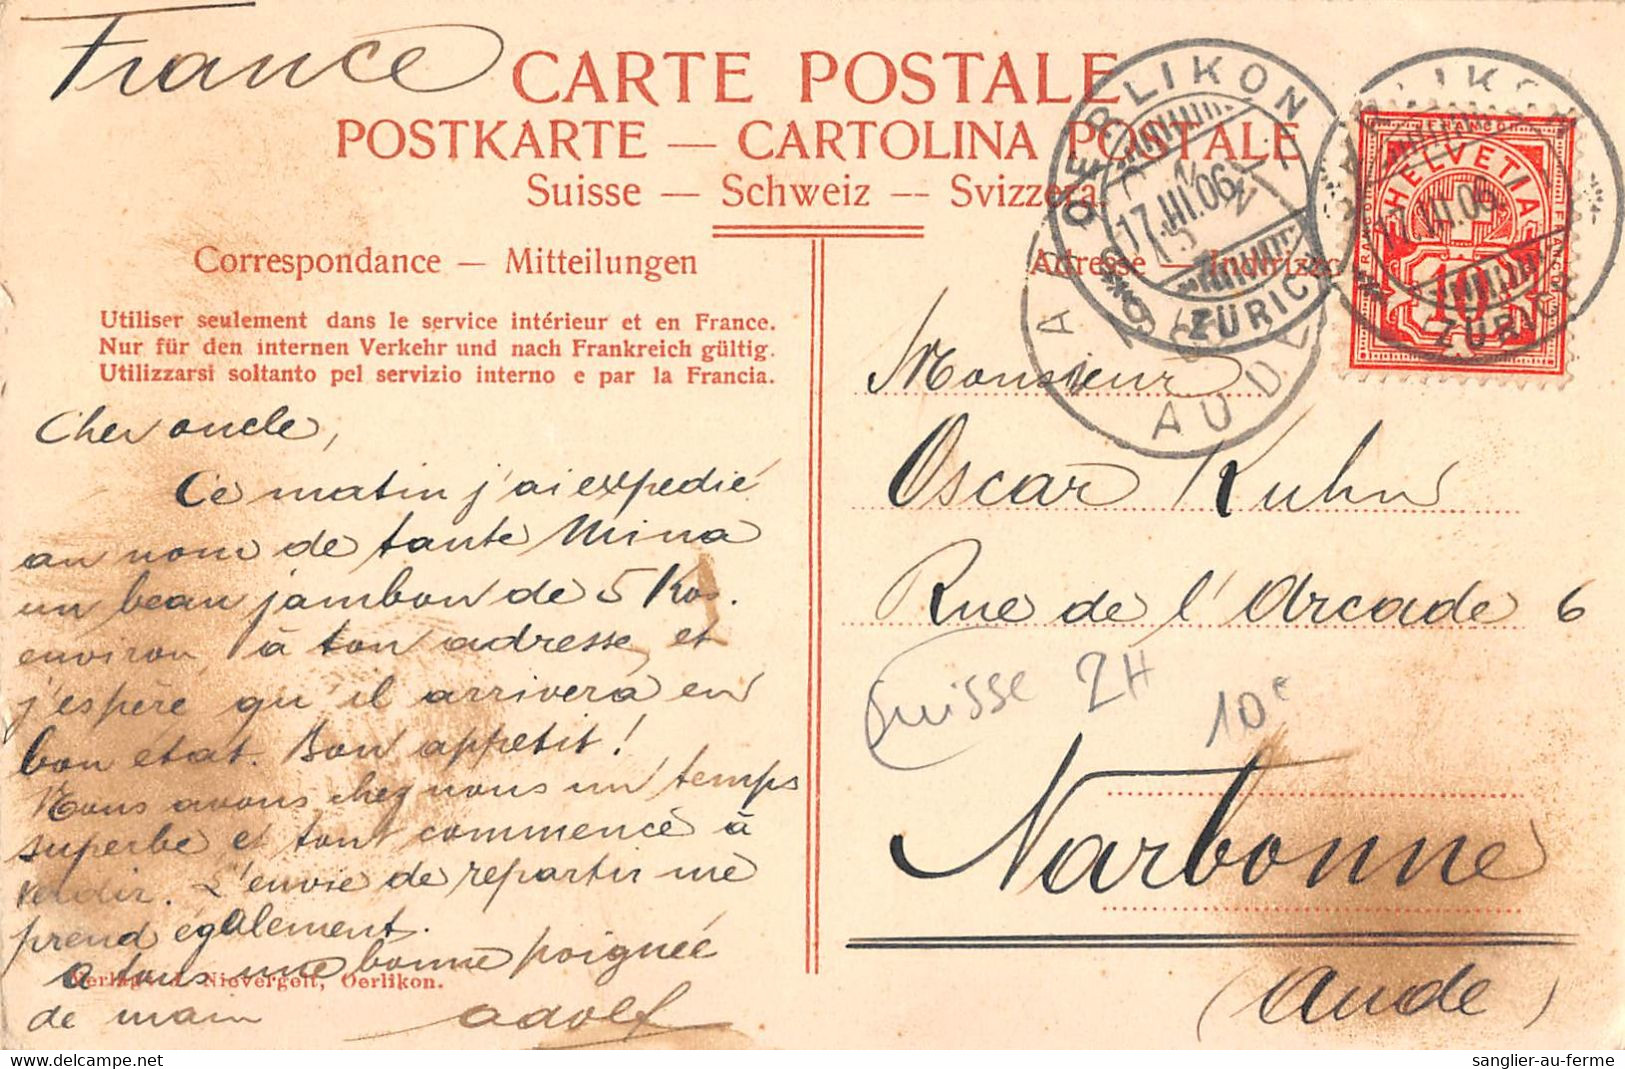 France
CARTE POSTALE
POSTKARTE — CARTOLINA POSTALE
Suisse — Schweiz — Svizzera.
Correspondance — Mitteilungen
Utiliser seulement dans le service intérieur et en France.
Nur für den internen Verkehr und nach Frankreich gültig.
Utilizzarsi soltanto pel servizio interno e par la Francia.
Cher oncle,
Ce matin j'ai expedié
au nom de tante Mina
un beau jambon de 5 Kos.
environ, à ton adresse, et
j'espère qu'il arrivera en
bon état. Bon appetit!
Nous avons chez nous un temps
superbe et tout commence à
verdir. L'envie de repartir me
prend également.
A tous une bonne poignée
de main
Adolf
Verlag J. Nievergelt, Oerlikon.
Adresse — Indirizzo
OERLIKON
17.III.06
ZÜRICH
AUDE
OERLIKON
17.III.06
ZÜRICH
FRANCO
HELVETIA
FRANCO
FRANCO
10
Monsieur
Oscar Kuhn
Rue de l'Arcade 6
Suisse 2H
10e
Narbonne
(Aude)
delcampe.net
sanglier-au-ferme